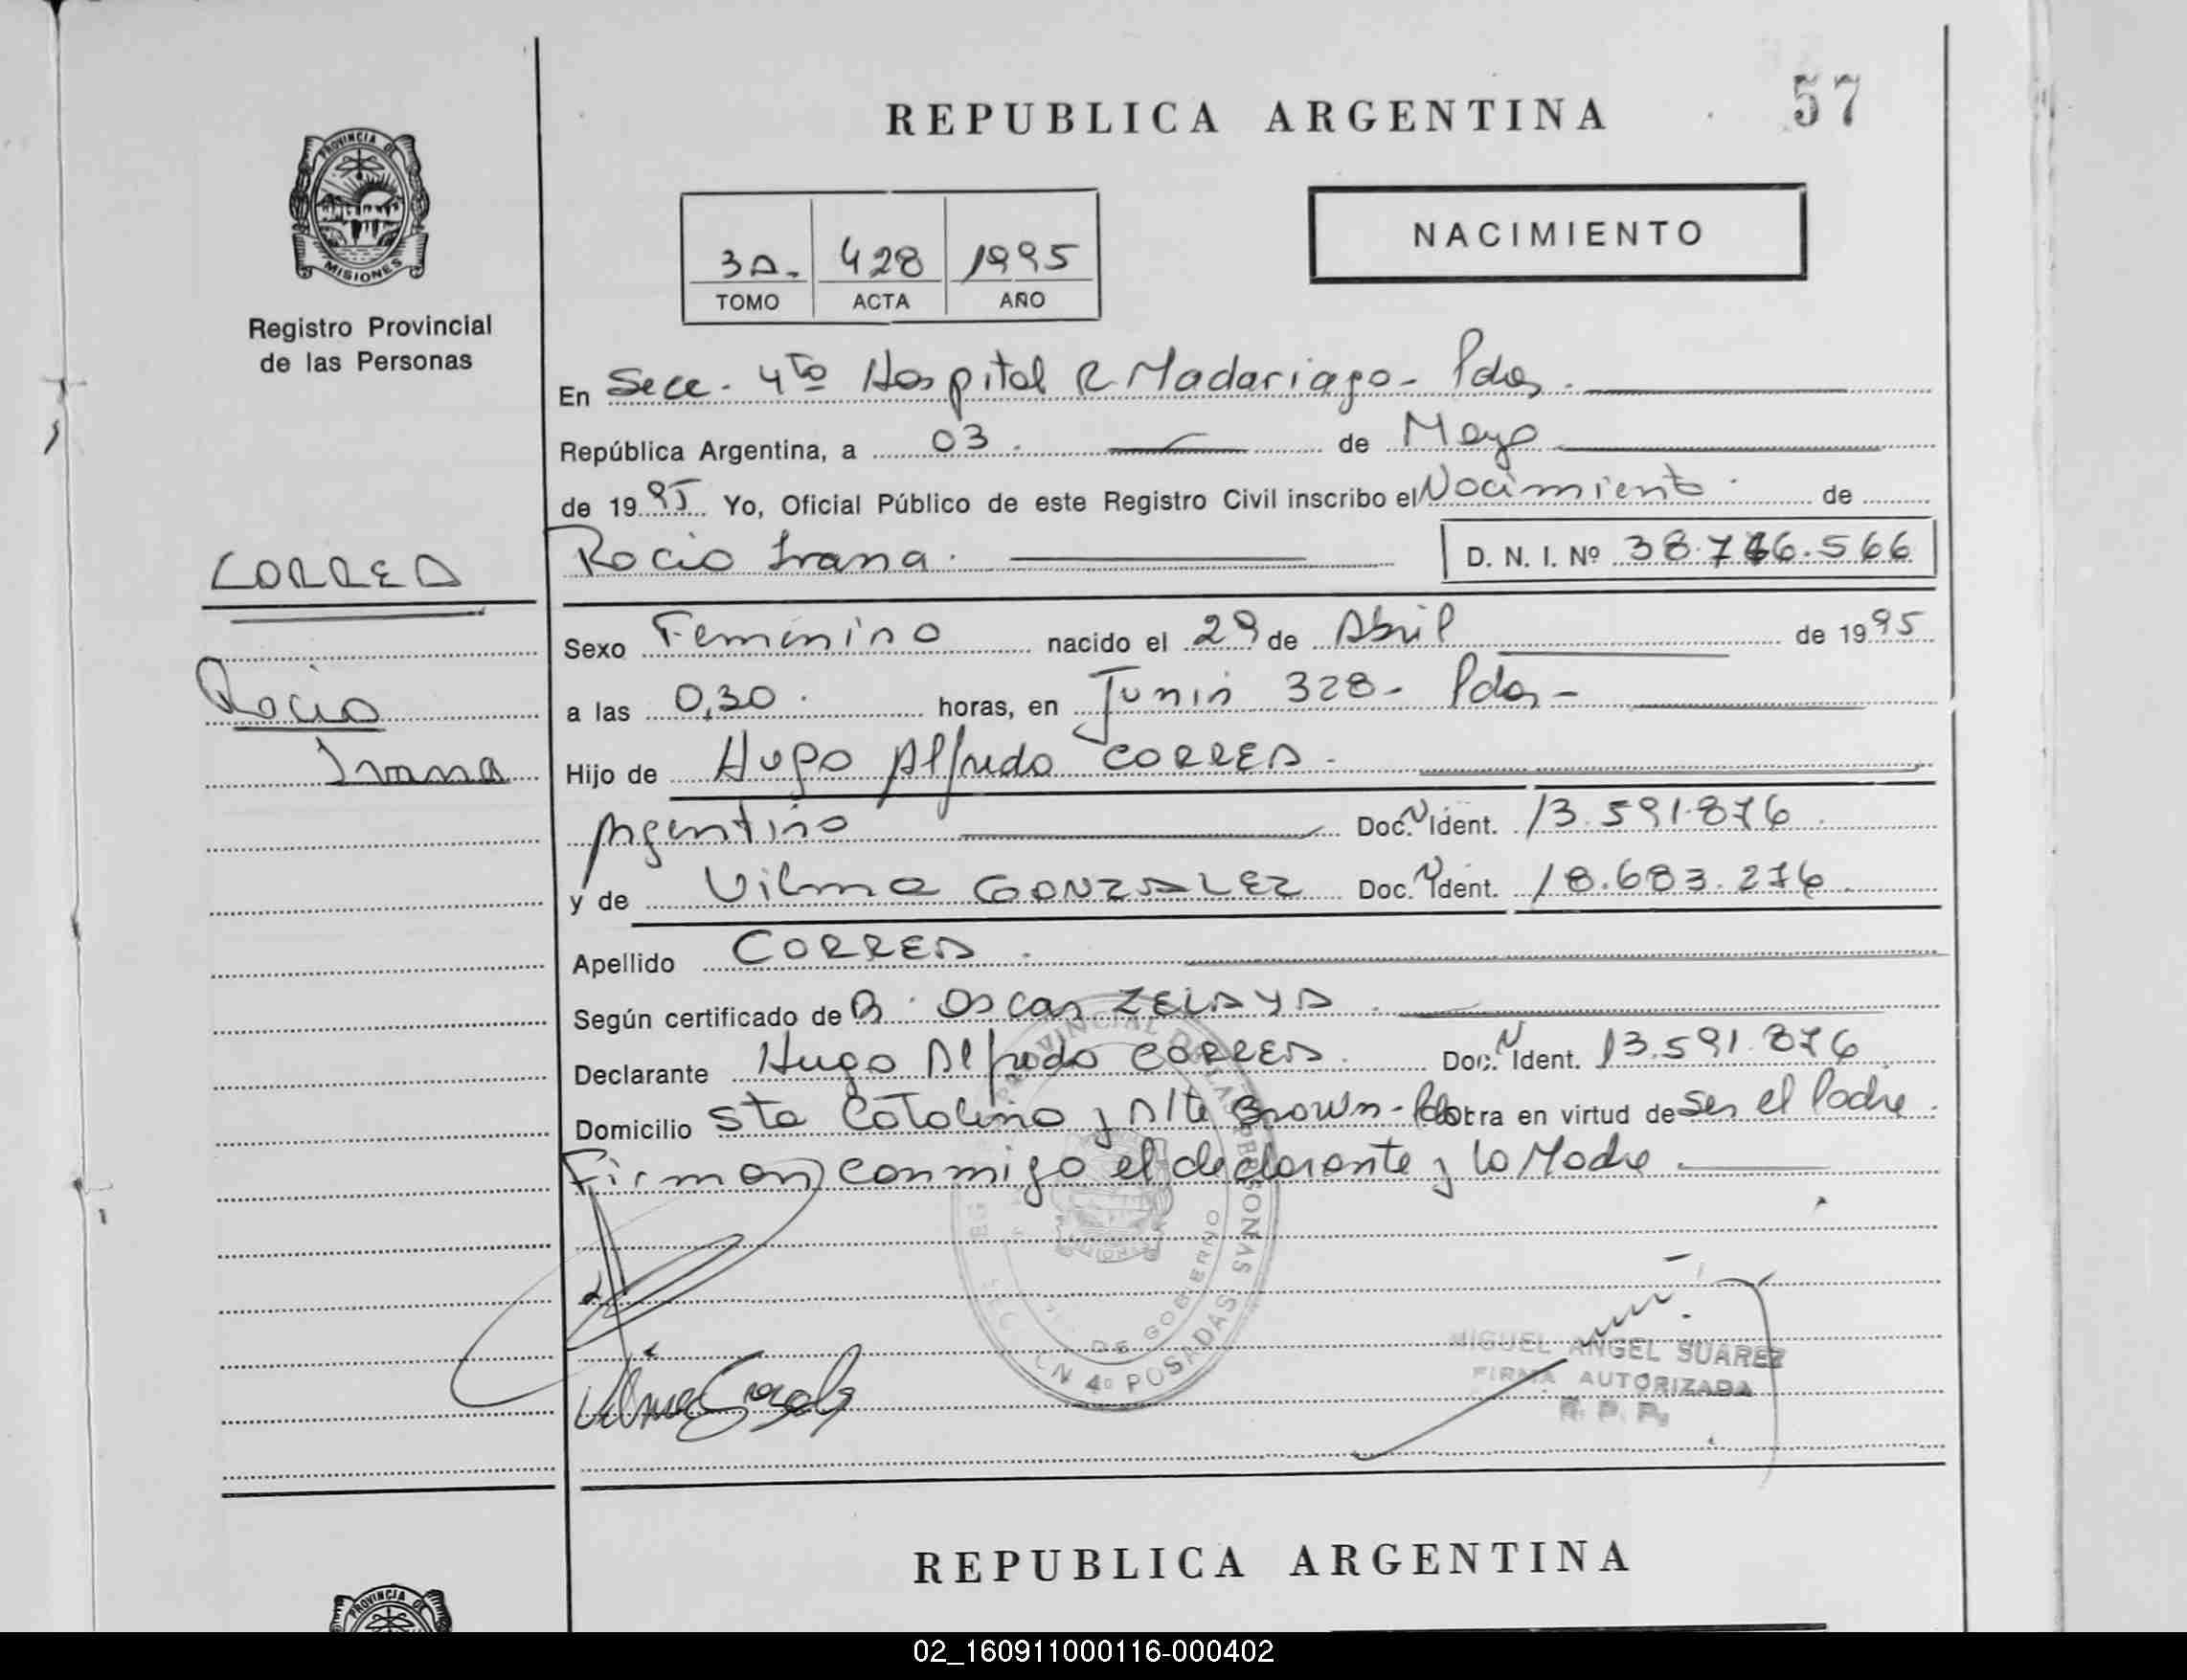 57
REPUBLICA ARGENTINA
NACIMIENTO
PROVINCIA DE
MISIONES
Registro Provincial
de las Personas
3A. 428 1995
TOMO ACTA AÑO
En Secc. 4to Hospital R Madariaga - Pdas.
República Argentina, a 03. de Mayo
de 1995 Yo, Oficial Público de este Registro Civil inscribo el Nacimiento. de
Rocio Ivana. D. N. I. Nº 38.766.566
CORREA
Rocio
Ivana
Sexo Femenino nacido el 29 de Abril de 1995
a las 0,30. horas, en Junin 328 - Pdas -
Hijo de Hugo Alfredo CORREA.
Argentino Doc. N Ident. 13.591.876.
y de Vilma GONZALEZ Doc. N Ident. 18.683.276.
Apellido CORREA.
Según certificado de Oscar ZELAYA.
Declarante Hugo Alfredo CORREA. Doc. N Ident. 13.591.876
Domicilio Sta Catalina y Alte Brown - Pdas obra en virtud de ser el Padre.
Firman conmigo el declarante y la Madre.
PROVINCIAL DE LAS PERSONAS
DE GOBIERNO
4º POSADAS
Vilma Gonzalez
MIGUEL ANGEL SUAREZ
FIRMA AUTORIZADA
R. P. P.
REPUBLICA ARGENTINA
PROVINCIA DE
02_160911000116-000402